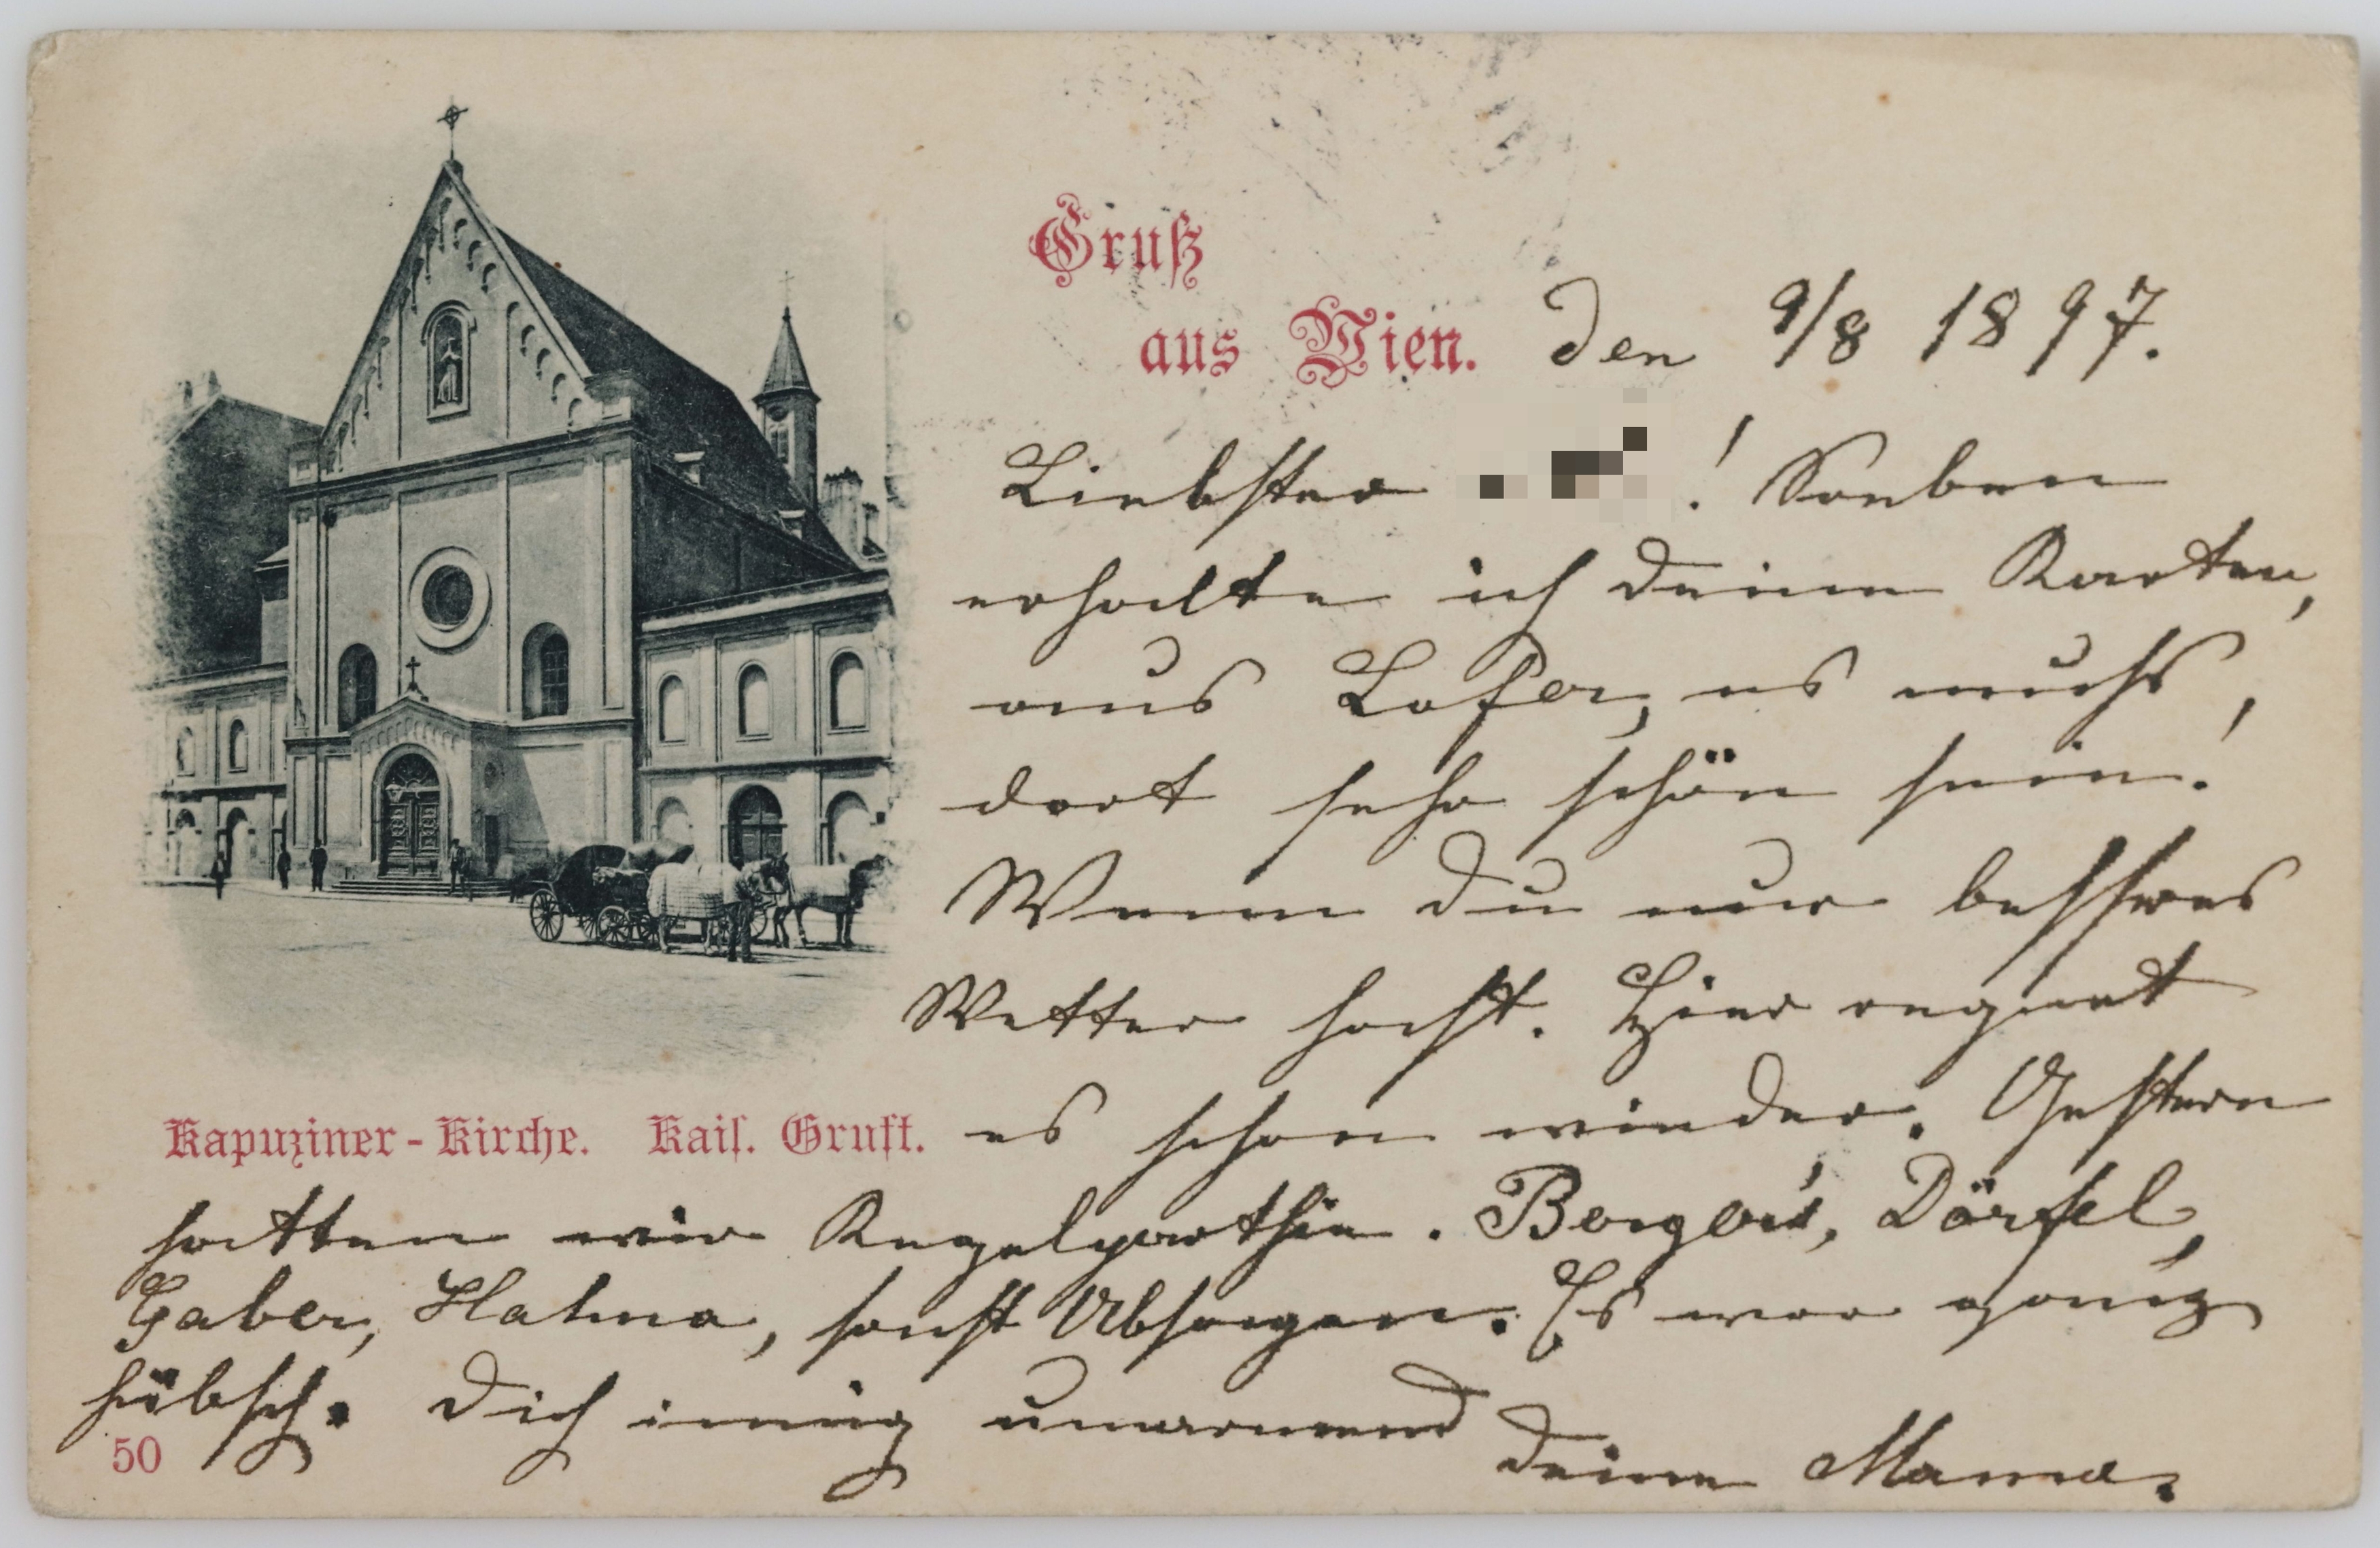 Gruß
aus Wien. den 9/8 1897.
Liebster ! Soeben
erhalte ich deine Karten,
aus Lofer, es muß,
dort sehr schön sein!
Wenn du nur besseres
Wetter hast. Hier regnet
Kapuziner-Kirche. Kais. Gruft. es schon wieder. Gestern
hatten wir Kegelparthie. Dörfel,
Gaber, sonst Es war ganz
hübsch. Dich innig umarmend
50 deine Mama.